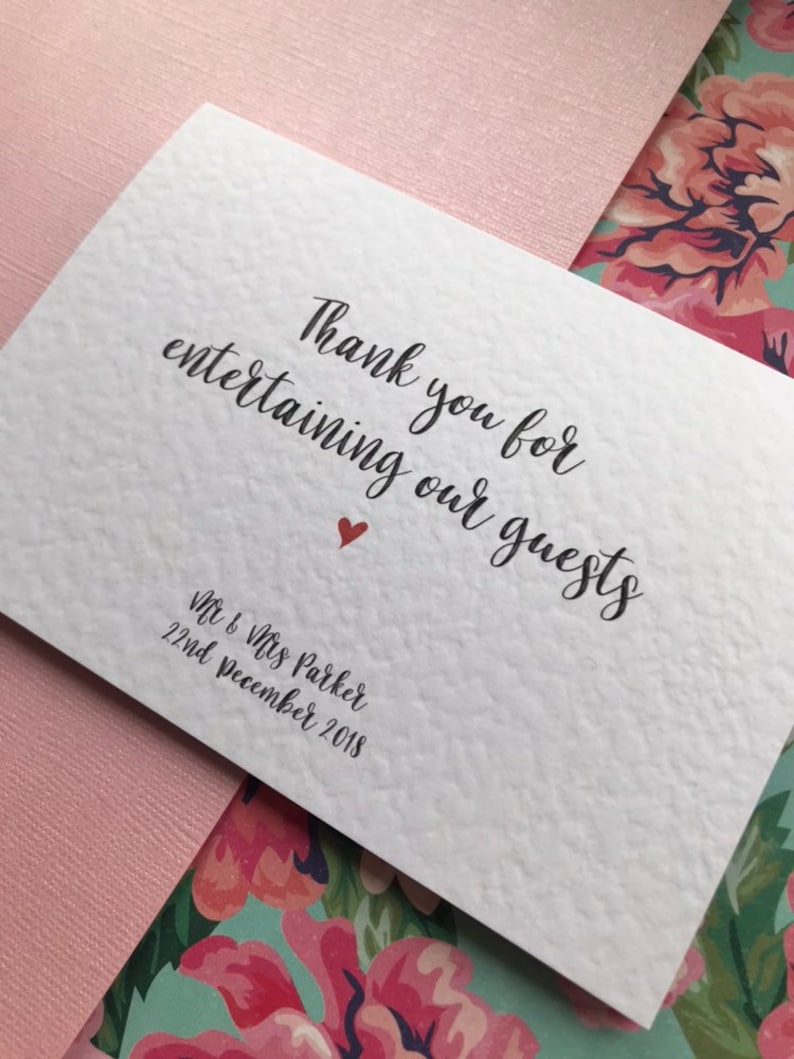 Thank you for
entertaining our guests
Mr & Mrs Parker
22nd December 2018